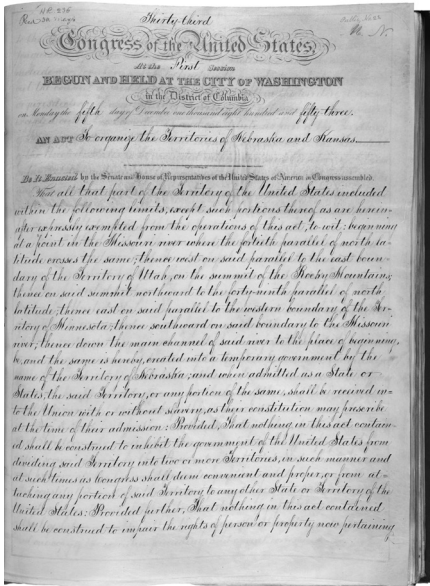 Thirty-third
Congress of the United States,
At the First Session
BEGUN AND HELD AT THE CITY OF WASHINGTON
in the District of Columbia
on Monday the fifth day of December one thousand eight hundred and fifty three.
AN ACT To organize the Territories of Nebraska and Kansas
Be It Enacted by the Senate and House of Representatives of the United States of America in Congress assembled,
That all that part of the Territory of the United States included
within the following limits, except such portions thereof as are herein-
after expressly exempted from the operations of this act, to wit: beginning
at a point in the Missouri river where the fortieth parallel of north la-
titude crosses the same; thence west on said parallel to the east boun-
dary of the Territory of Utah, on the summit of the Rocky Mountains;
thence on said summit northward to the forty-ninth parallel of north
latitude; thence east on said parallel to the western boundary of the Ter-
ritory of Minnesota; thence southward on said boundary to the Missouri
river; thence down the main channel of said river to the place of beginning,
be, and the same is hereby, created into a temporary government by the
name of the Territory of Nebraska; and when admitted as a State or
States, the said Territory, or any portion of the same, shall be received in-
to the Union with or without slavery, as their constitution may prescribe
at the time of their admission: Provided, That nothing in this act contain-
ed shall be construed to inhibit the government of the United States from
dividing said Territory into two or more Territories, in such manner and
at such times as Congress shall deem convenient and proper, or from at-
taching any portion of said Territory to any other State or Territory of the
United States: Provided further, That nothing in this act contained
shall be construed to impair the rights of person or property now pertaining